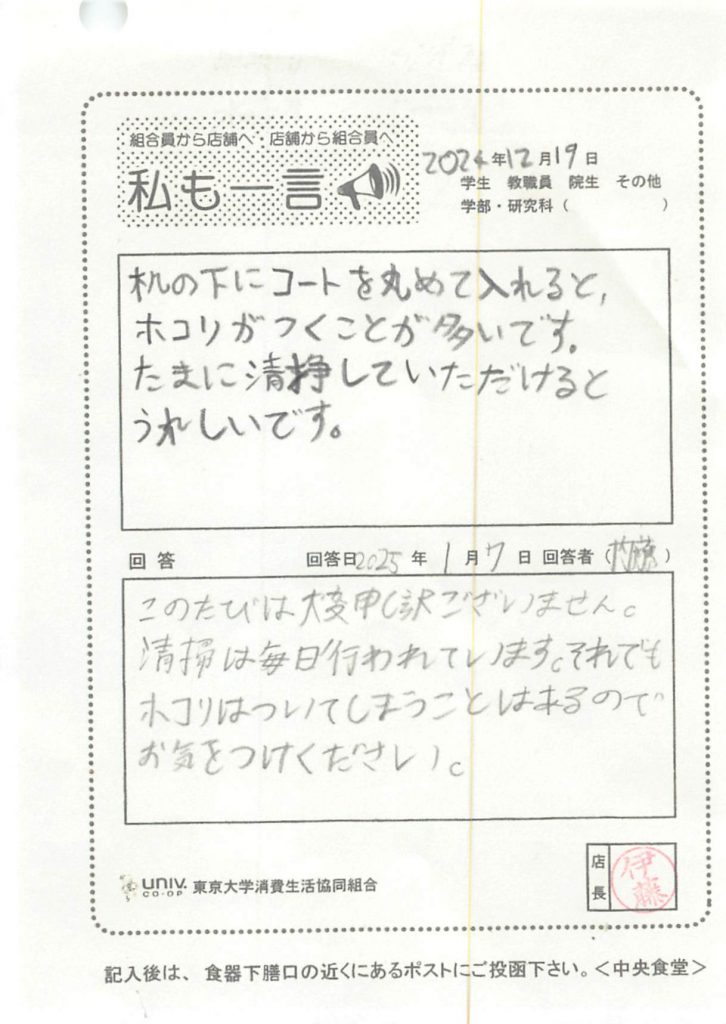 組合員から店舗へ・店舗から組合員へ
私も一言
2024年12月19日
学生 教職員 院生 その他
学部・研究科（ ）
机の下にコートを丸めて入れると,
ホコリがつくことが多いです.
たまに清掃していただけると
うれしいです。
回答 回答日2025年1月7日 回答者（ ）
このたびは大変申し訳ございません。
清掃は毎日行われています。それでも
ホコリはついてしまうことはあるので
お気をつけください。
店長 伊藤
UNIV. CO-OP 東京大学消費生活協同組合
記入後は、食器下膳口の近くにあるポストにご投函下さい。＜中央食堂＞